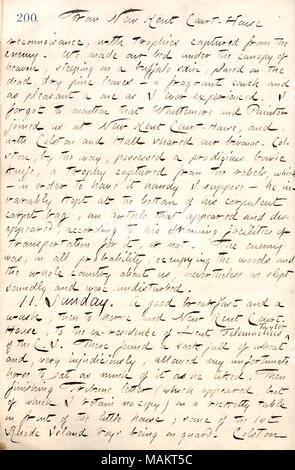 200. From New Kent Court-House
reconnoisance, with trophies captured from the
enemy. We made our bed under the canopy of
heaven, sleeping on a buffalo skin, placed on the
dead dry pine leaves and fragrant earth and
as pleasant a one as I ever experienced. I
forgot to mention that Whittemore and Painter
joined us at New Kent Court House, and
with Colston and Hall shared our bivouac. Col-
ston, by the way, possessed a prodigious bowie
knife, a trophy captured from the rebels, which
— in order to have it handy I suppose — he in-
variably kept at the bottom of his corpulent
carpet bag, an article that appeared and dis-
appeared, according to his obtaining facilities of
transportation for it, or not. The enemy
was, in all probability, occupying the woods and
the whole country about us, nevertheless we slept
soundly and were undisturbed.
11. Sunday. A good breakfast and a
wash, then to horse and New Kent Court-
House, to the ex-residence of Lieut Telemachus Taylor
of the C.S. There found a sack full of wheat
and, very injudiciously allowed my unfortunate
horse to eat as much of it as he liked. Then
finishing Tribune letter (which appeared but
which I retain no copy) on a ricketty table
in front of the little house; some of the 1st
Rhode Island boys being on guard. Colston
alamy
Image ID: MAKT5C
www.alamy.com